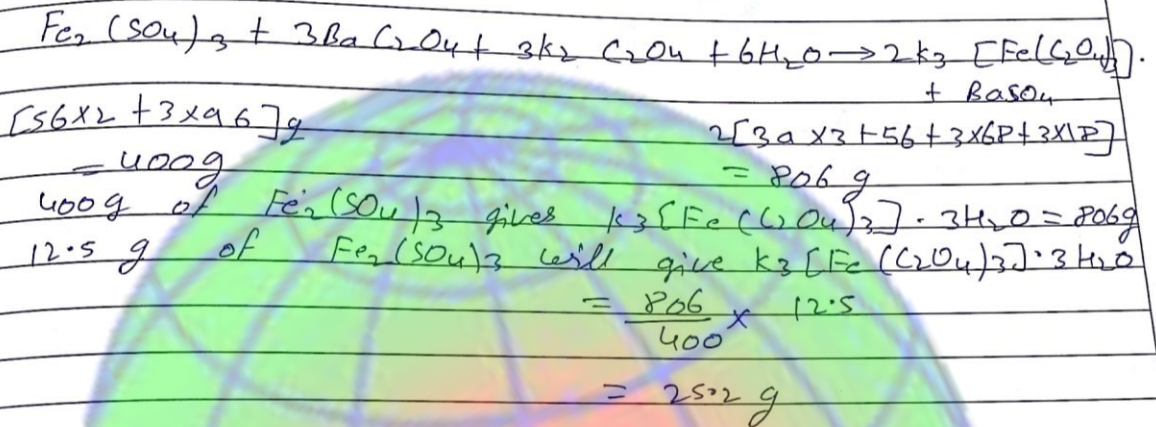 Fe2 (SO4)3 + 3Ba C2O4 + 3K2 C2O4 + 6H2O → 2K3 [Fe(C2O4)3].
+ BaSO4
[56×2 + 3×96]g
2[39×3+56+3×68+3×18]
= 400g
= 806 g
400g of Fe2(SO4)3 gives K3[Fe(C2O4)3].3H2O = 806g
12.5 g of Fe2(SO4)3 will give K3[Fe(C2O4)3].3H2O
= 806/400 × 12.5
= 25.2 g